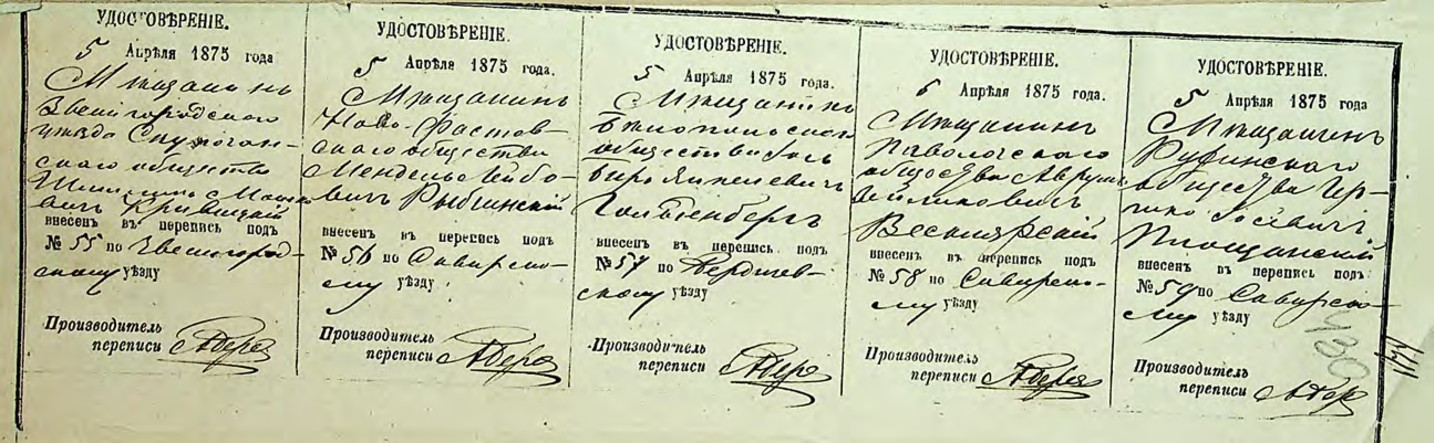 УДОСТОВѢРЕНІЕ.
5 Апрѣля 1875 года
Мѣщанинъ
Звенигородского
уѣзда
ского общества
Кривицкій
внесенъ въ перепись под
№ 55 по Звенигород-
скому уѣзду
Производитель
переписи
УДОСТОВѢРЕНІЕ.
5 Апрѣля 1875 года.
Мѣщанинъ
Ново-Фастов-
ского общества
Мендель Лейбо-
вичъ Рыбчинскій
внесенъ въ перепись подъ
№ 56 по Сквирско-
му уѣзду
Производитель
переписи
УДОСТОВѢРЕНІЕ.
5 Апрѣля 1875 года.
Мѣщанинъ
общества
Янкелевичъ
Гольденбергъ
внесенъ въ перепись подъ
№ 57 по Бердичев-
скому уѣзду
Производитель
переписи
УДОСТОВѢРЕНІЕ.
6 Апрѣля 1875 года.
Мѣщанинъ
Паволочского
общества Аврумъ
внесенъ въ перепись подъ
№ 58 по Сквирско-
му уѣзду
Производитель
переписи
УДОСТОВѢРЕНІЕ.
5 Апрѣля 1875 года
Мѣщанинъ
Ружинского
общества Гер-
шко Іосевичъ
Площанскій
внесенъ въ перепись подъ
№ 59 по Сквирско-
му уѣзду
Производитель
переписи
430